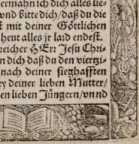 ermahn ich dich alles lie-
vnd bitte dich/daß du die
mit deiner Göttlichen
heut alles jr laid endest.
reicher HErr Jesu Chri-
n dich daß du den viertzi-
nach deiner sieghafften
y deiner lieben Mutter/
en lieben Jüngern/vnnd